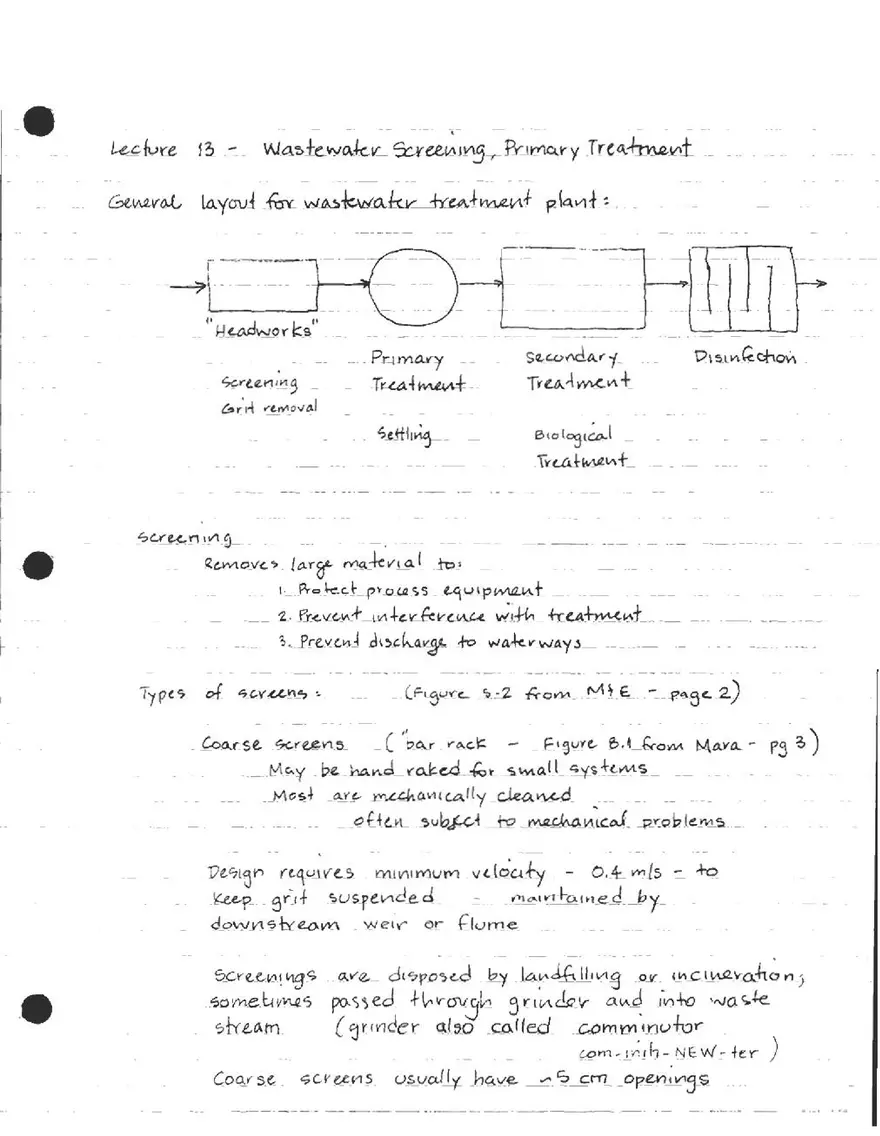 Lecture 13 - Wastewater Screening, Primary Treatment
General layout for wastewater treatment plant:
"Headworks"
Primary Secondary Disinfection
Screening Treatment Treatment
Grit removal
Settling Biological
Treatment
Screening
Removes large material to:
1. Protect process equipment
2. Prevent interference with treatment
3. Prevent discharge to waterways
Types of screens: (Figure 5-2 from M&E - page 2)
Coarse screens ("bar rack - Figure 8.1 from Mara - pg 3)
May be hand raked for small systems
Most are mechanically cleaned
often subject to mechanical problems
Design requires minimum velocity - 0.4 m/s - to
keep grit suspended - maintained by
downstream weir or flume
Screenings are disposed by landfilling or incineration;
sometimes passed through grinder and into waste
stream (grinder also called comminutor
com-min-NEW-ter)
Coarse screens usually have ~5 cm openings